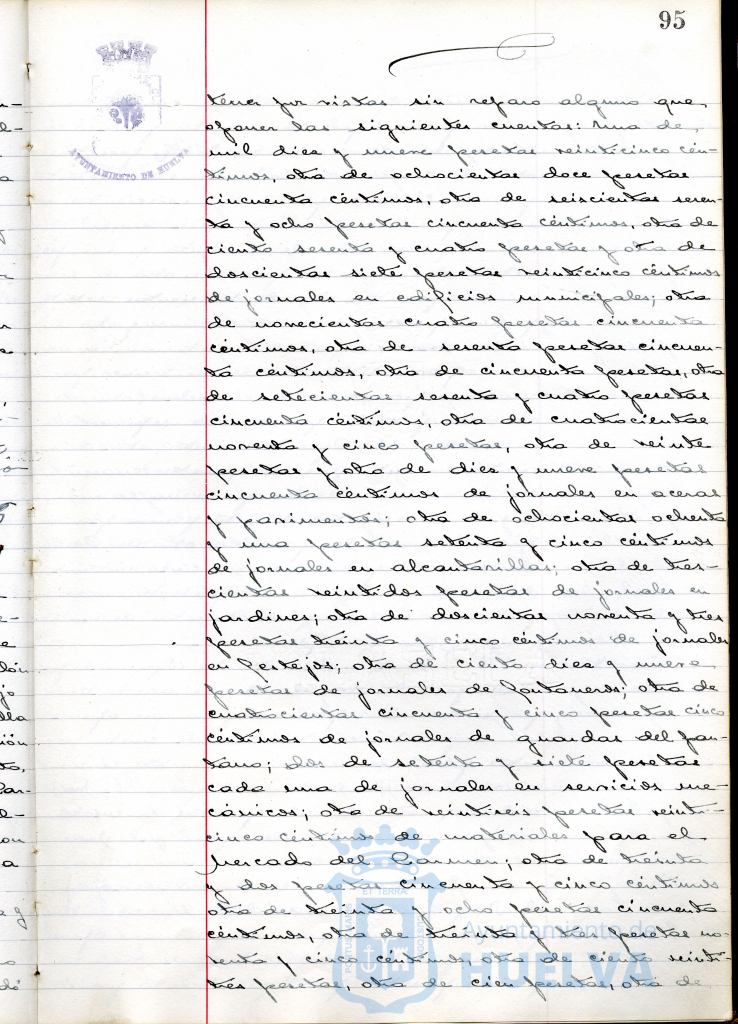 95
AYUNTAMIENTO DE HUELVA
tener por vistas sin reparo alguno que
oponer las siguientes cuentas: una de
mil diez y nueve pesetas veinticinco cén-
timos, otra de ochocientas doce pesetas
cincuenta céntimos, otra de seiscientas seten-
ta y ocho pesetas cincuenta céntimos, otra de
ciento sesenta y cuatro pesetas y otra de
doscientas siete pesetas veinticinco céntimos
de jornales en edificios municipales; otra
de novecientas cuatro pesetas cincuenta
céntimos, otra de sesenta pesetas cincuen-
ta céntimos, otra de cincuenta pesetas, otra
de setecientas sesenta y cuatro pesetas
cincuenta céntimos, otra de cuatrocientas
noventa y cinco pesetas, otra de veinte
pesetas y otra de diez y nueve pesetas
cincuenta céntimos de jornales en aceras
y pavimentos; otra de ochocientas ochenta
y una pesetas setenta y cinco céntimos
de jornales en alcantarillas; otra de tres-
cientas veintidos pesetas de jornales en
jardines; otra de doscientas noventa y tres
pesetas treinta y cinco céntimos de jornales
en festejos; otra de ciento diez y nueve
pesetas de jornales de fontaneros; otra de
cuatrocientas cincuenta y cinco pesetas cinco
céntimos de jornales de guardas del pan-
tano; dos de setenta y siete pesetas
cada una de jornales en servicios me-
cánicos; otra de veintiseis pesetas veinti-
cinco céntimos de materiales para el
Mercado del Carmen; otra de treinta
y dos pesetas cincuenta y cinco céntimos
otra de treinta y ocho pesetas cincuenta
céntimos, otra de treinta y tres pesetas no-
venta y cinco céntimos otra de ciento veinti-
tres pesetas, otra de cien pesetas, otra de
Ayuntamiento de
HUELVA